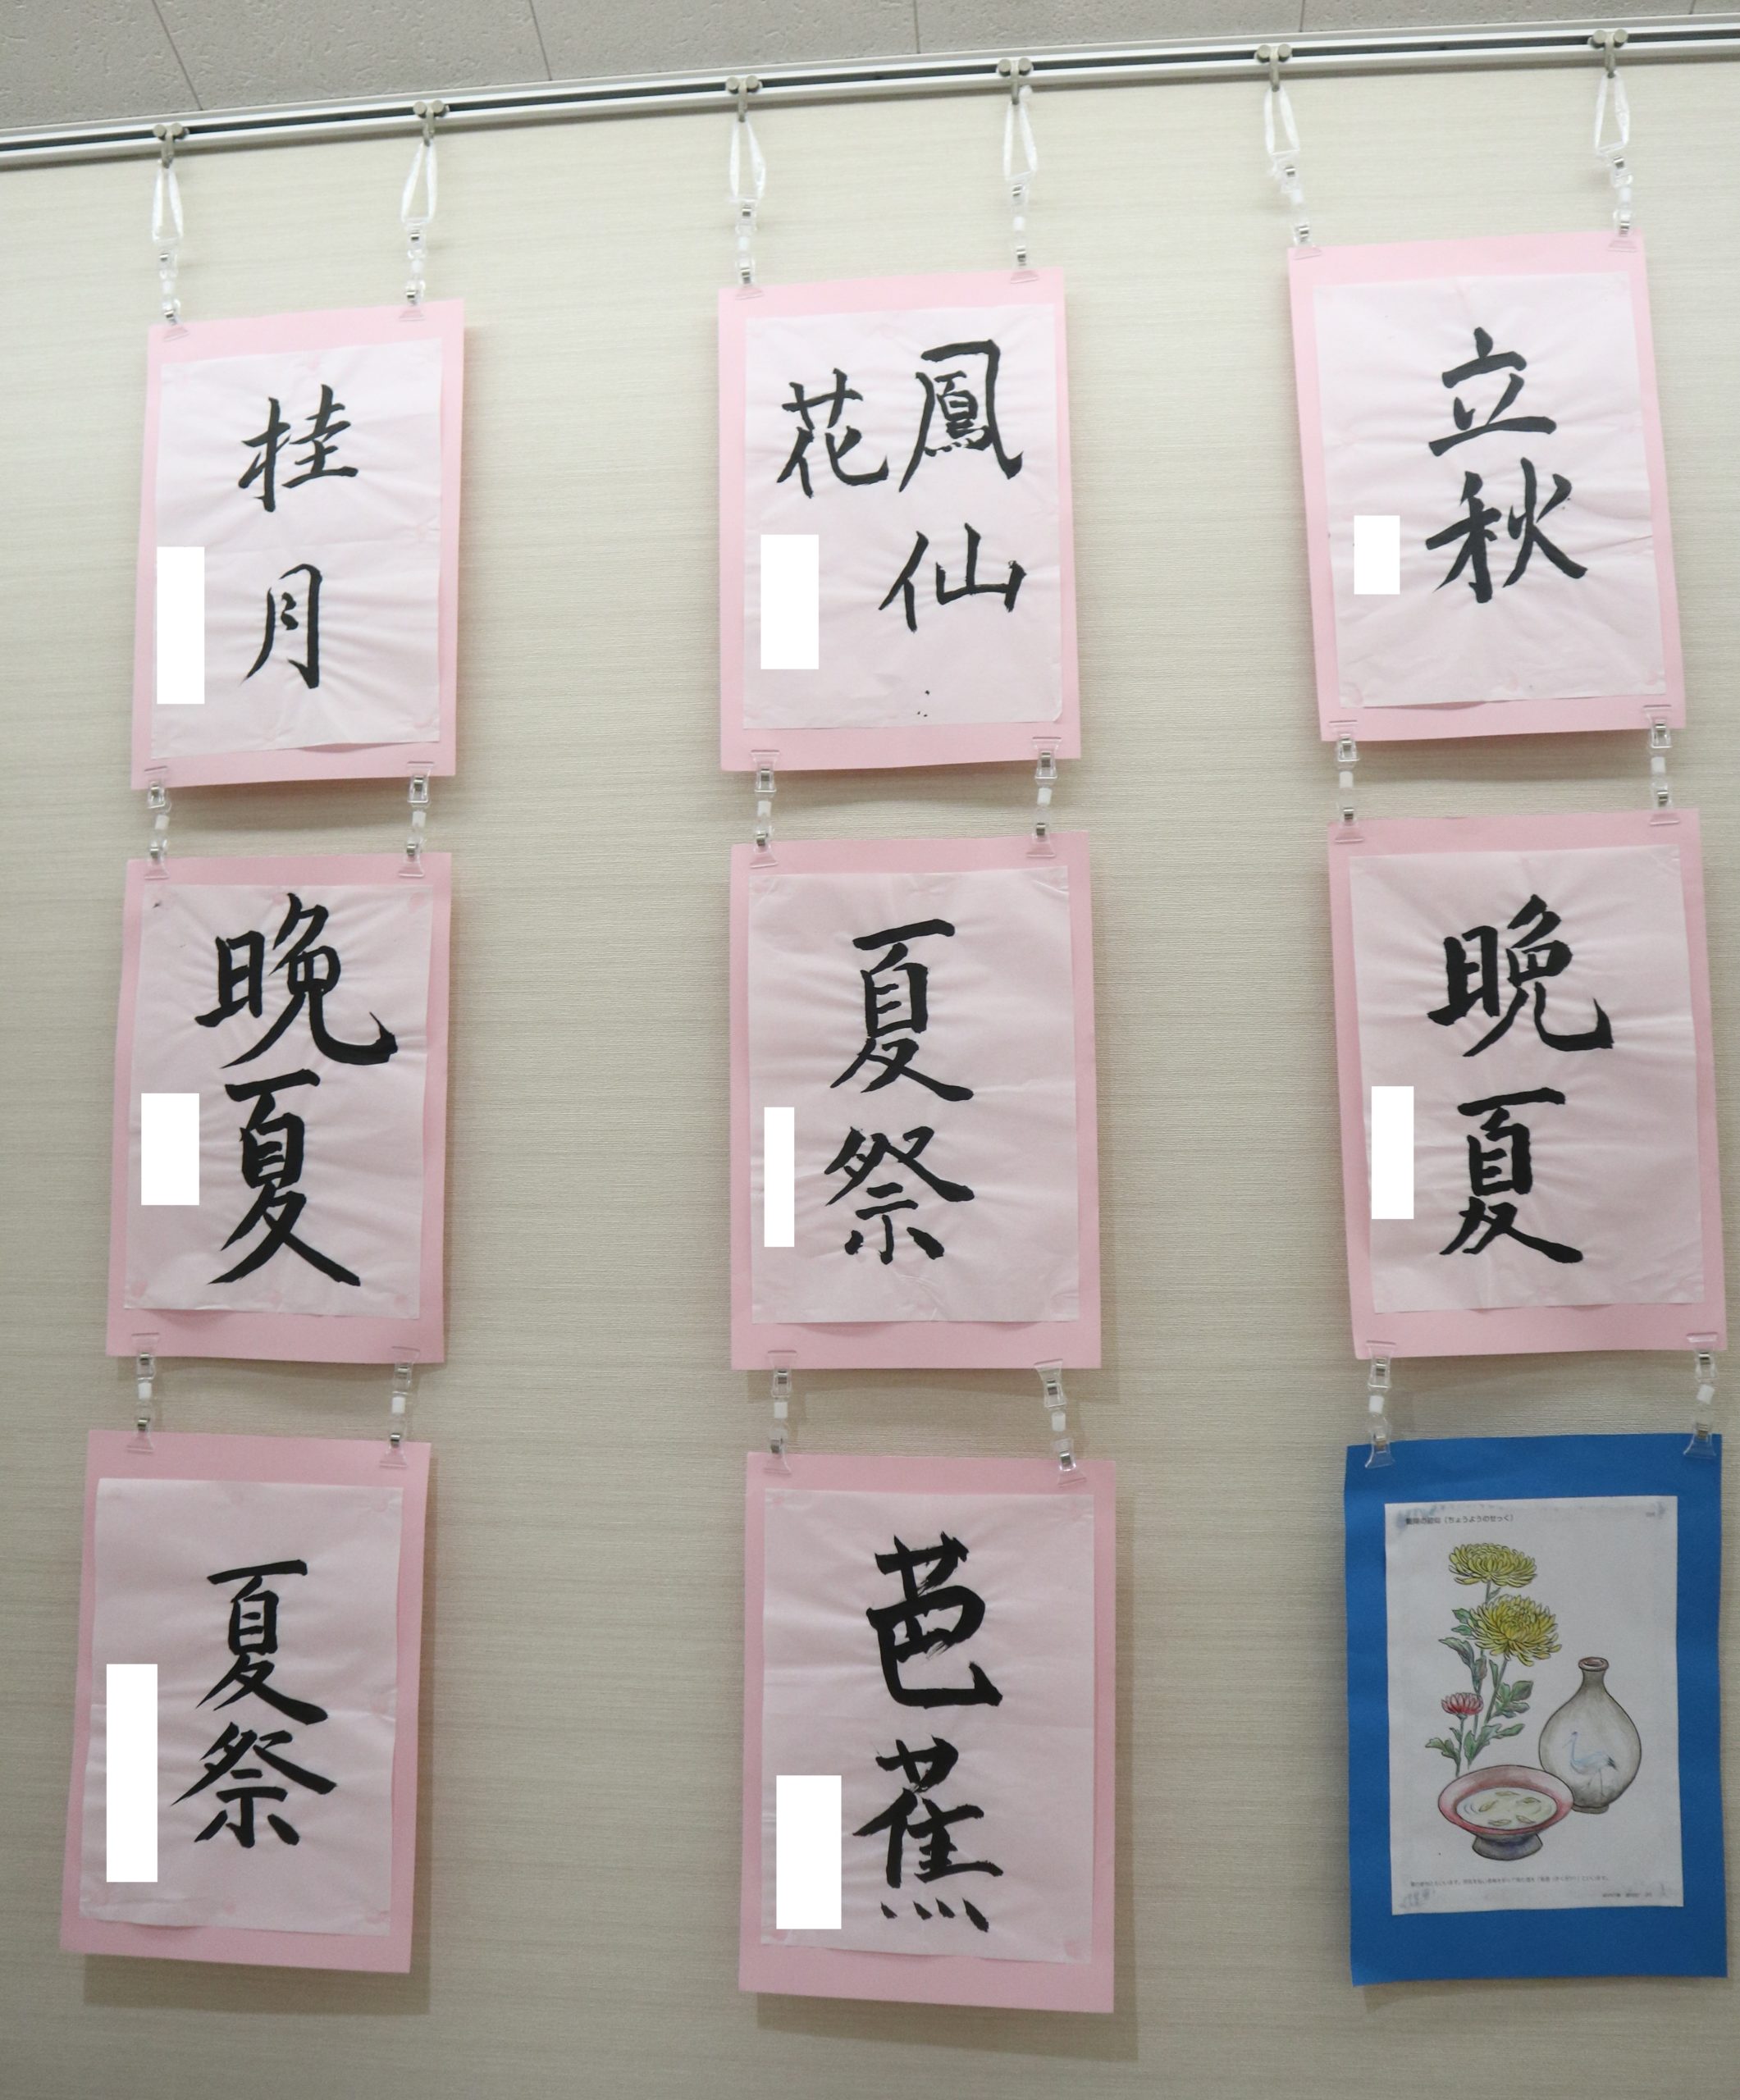 立秋
晩夏
鳳仙
花
夏祭
芭蕉
桂月
晩夏
夏祭
(ちょうようのせっく)